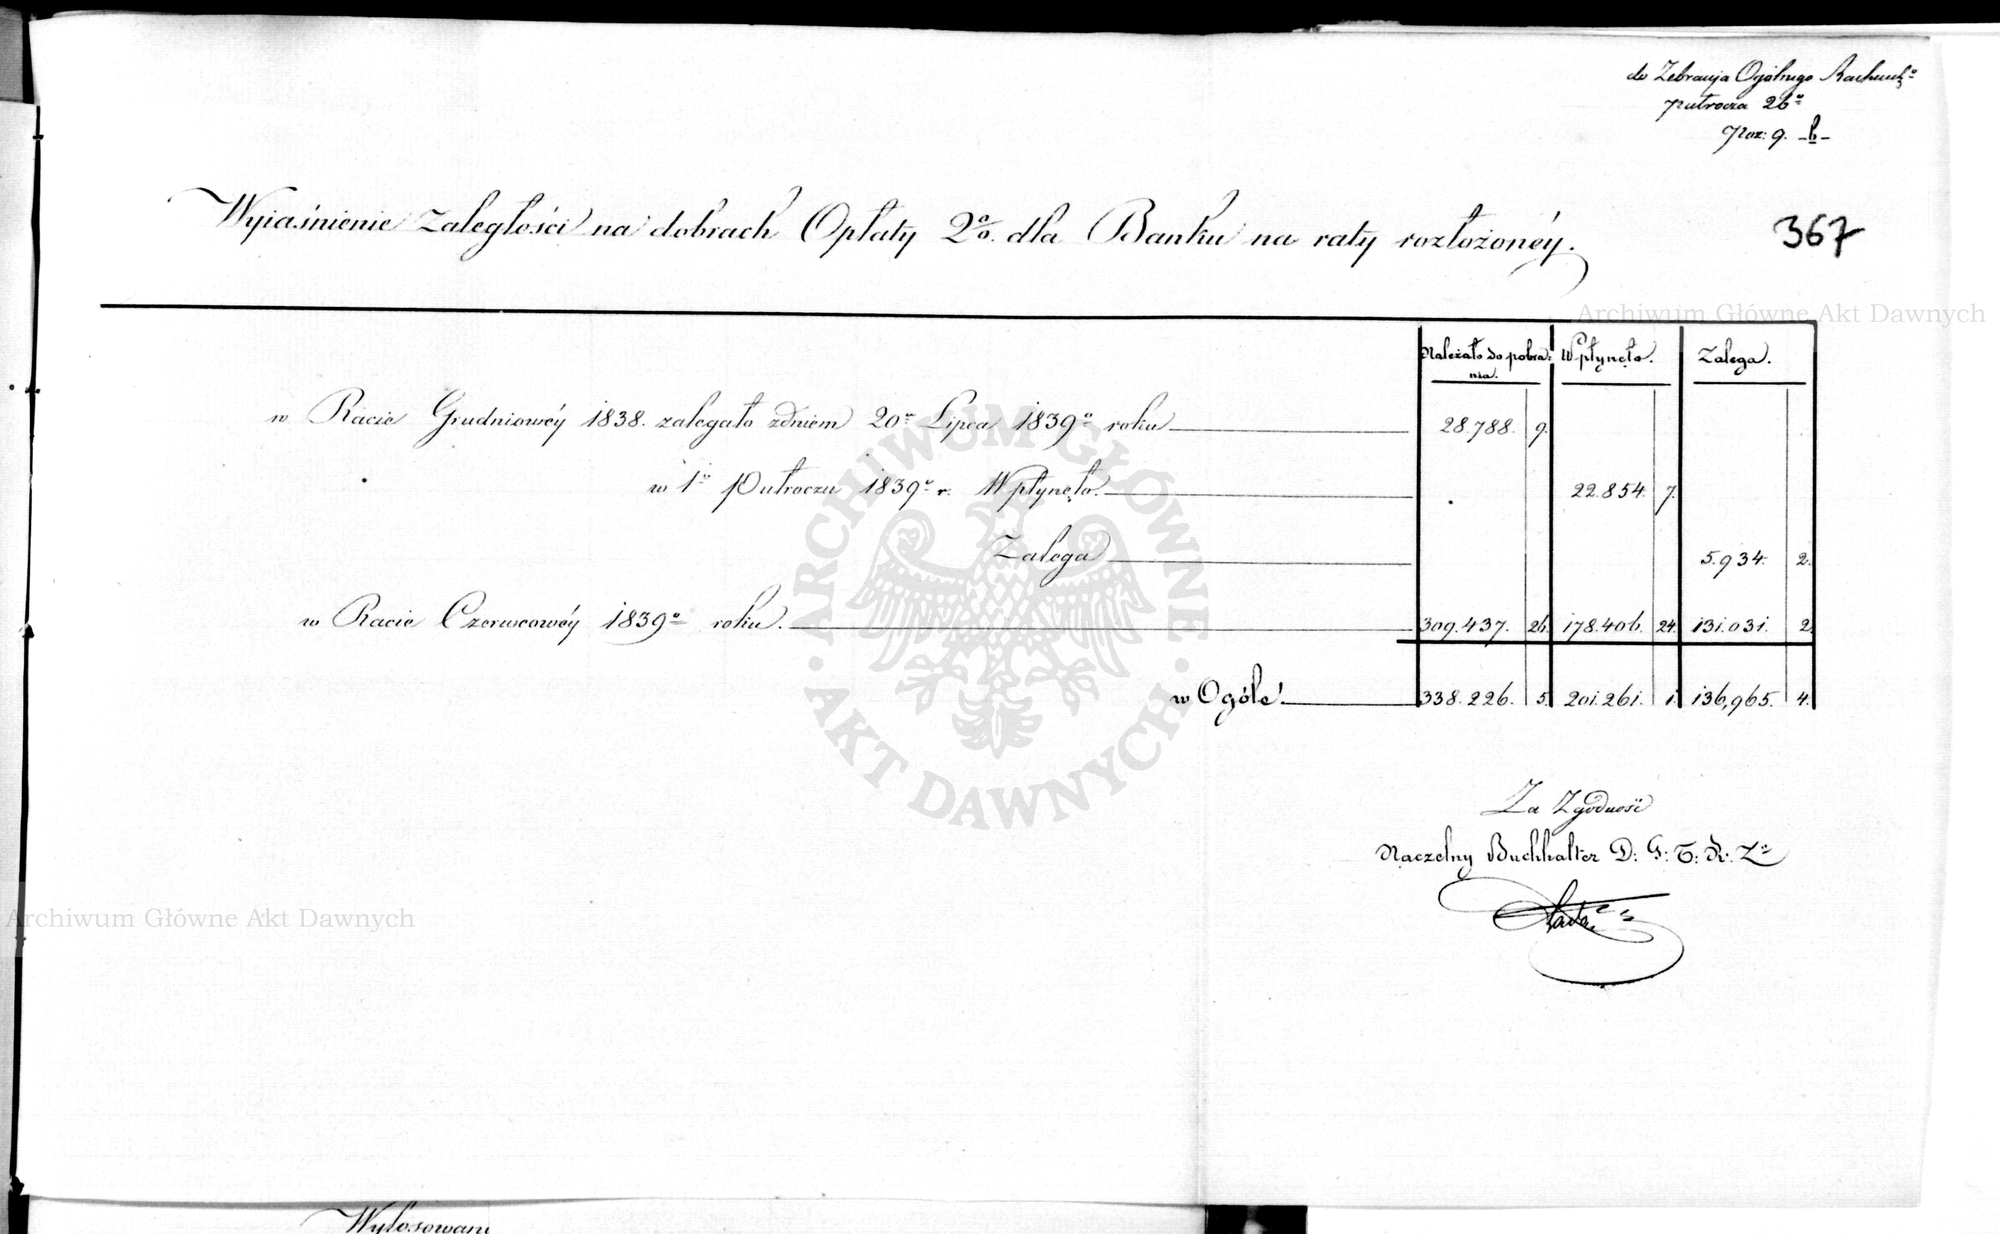 do Zebrania Ogólnego Rachunk:º
pułrocza 26º
Poz: 9. -b-
Wyiaśnienie zaległości na dobrach Opłaty 2% dla Banku na raty rozłożonéy.
367
Archiwum Główne Akt Dawnych
Należało do pobra: Wpłynęło. Zalega.
nia.
w Racie Grudniowéy 1838. zalegało z dniem 20º Lipca 1839º roku 28.788. 9.
w 1º Pułroczu 1839º r. Wpłynęło. 22.854. 7.
Zalega 5.934. 2.
w Racie Czerwcowéy 1839º roku. 309.437. 26. 178.406. 24. 131.031. 2.
w Ogóle 338.226. 5. 201.261. 1. 136,965. 4.
ARCHIWUM GŁÓWNE AKT DAWNYCH
Za Zgodność
Naczelny Buchhalter D: G: T: K: Zº
Archiwum Główne Akt Dawnych
Wylosowani